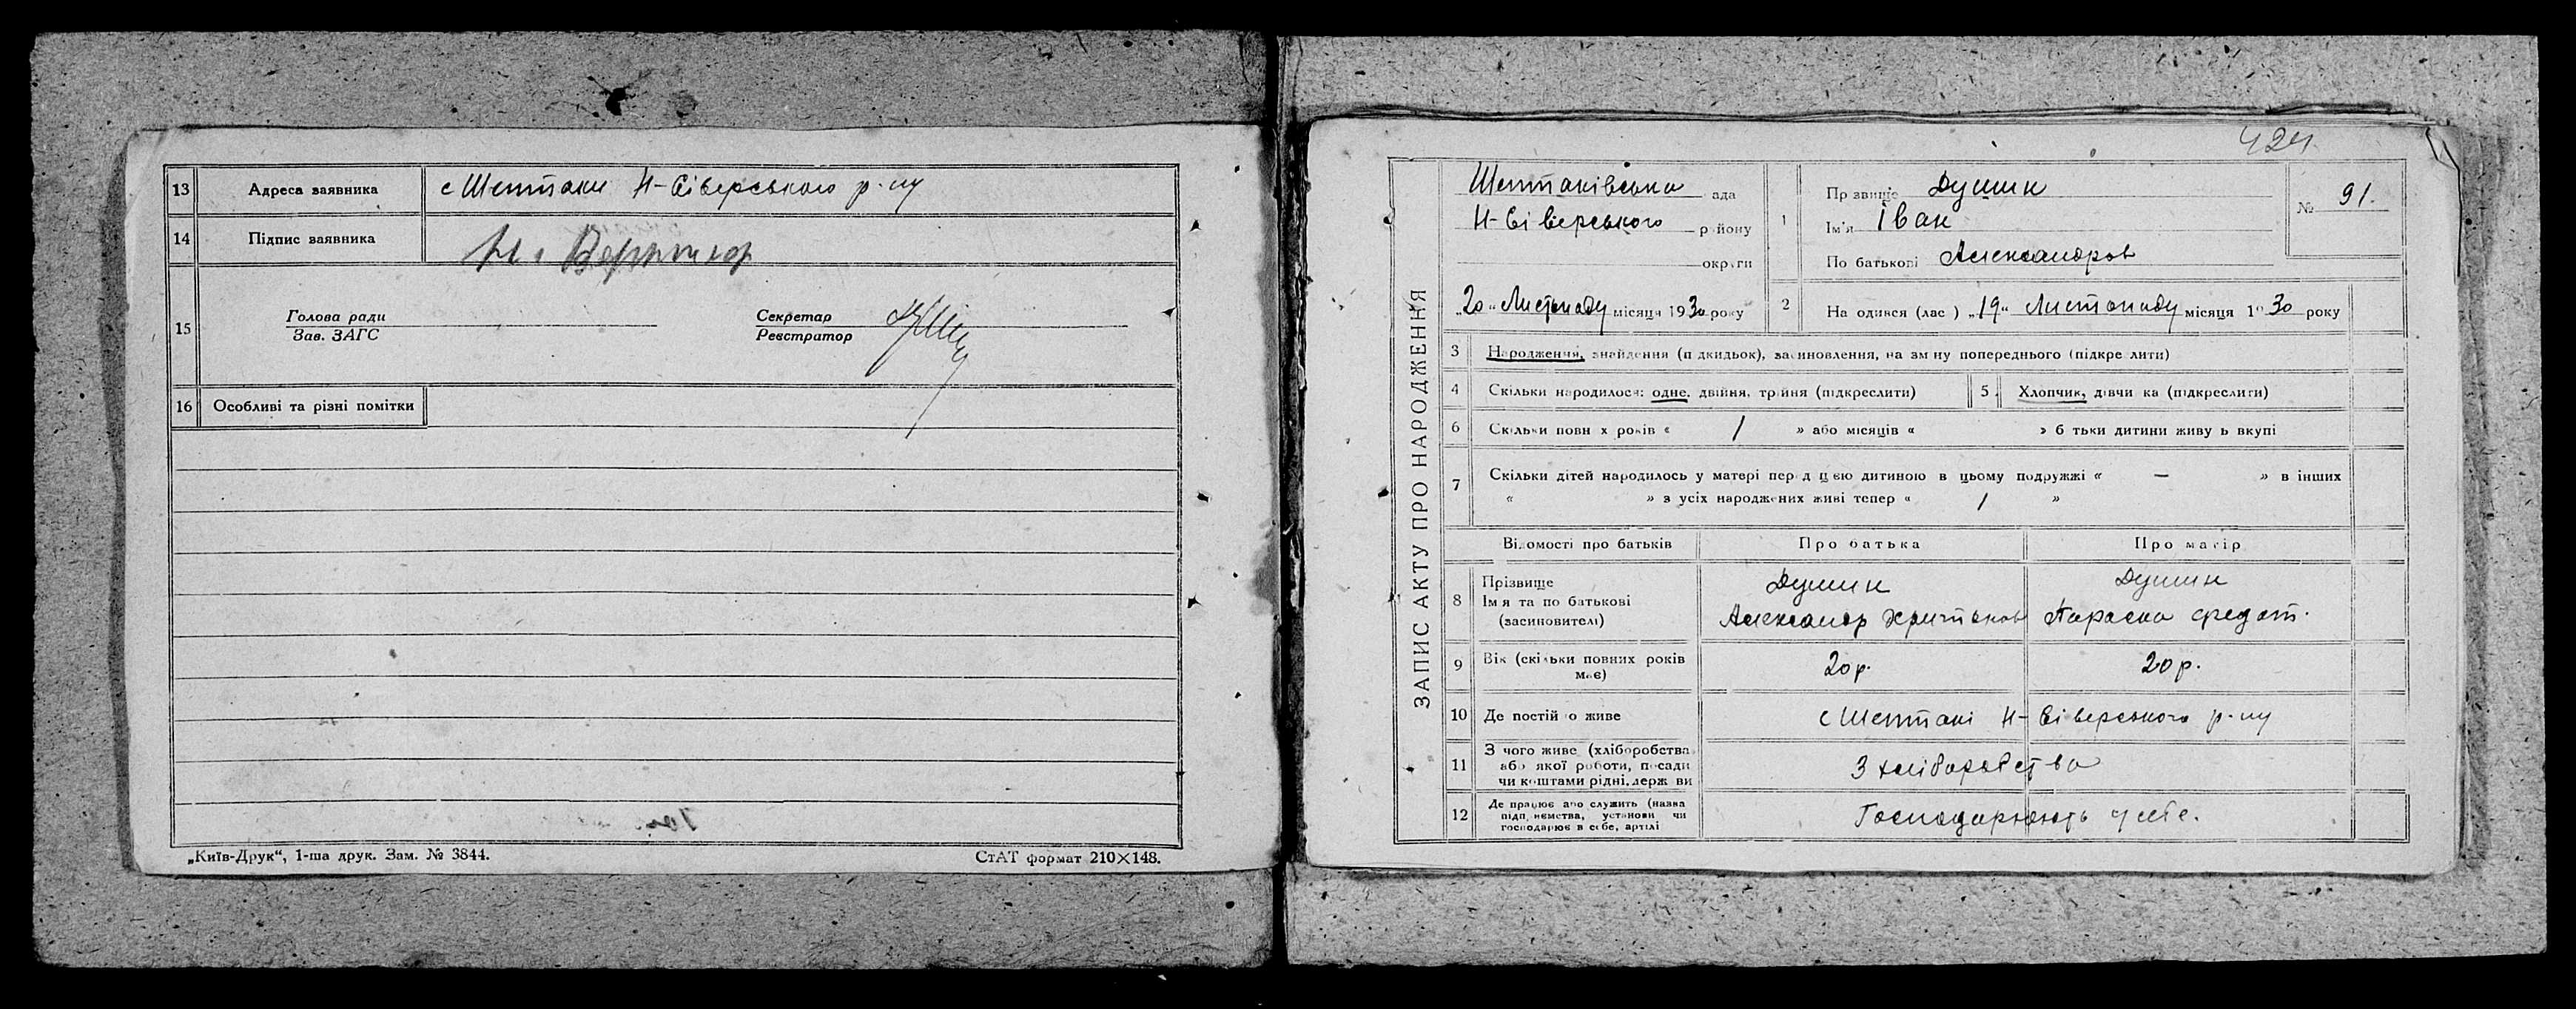 13 Адреса заявника с Шептаки Н-Сіверського р-ну
14 Підпис заявника
15 Голова ради
Зав. ЗАГС
Секретар
Реєстратор
16 Особливі та різні помітки
„Київ-Друк“, 1-ша друк. Зам. № 3844.
СтАТ формат 210×148.
424
ЗАПИС АКТУ ПРО НАРОДЖЕННЯ
Шептаківська ада
Н-Сіверського р йону
окр ги
„20“ Листопаду місяця 1930 року
1 Пр звище Душин
Ім'я Іван
По батькові Александров
№ 91.
2 На одився (лас ) „19“ Листопаду місяця 1930 року
3 Народження, знайдення (п дкидьок), засиновлення, на зм ну попереднього (підкре лити)
4 Скільки народилося: одне, двійня, трійня (підкреслити)
5 Хлопчик, дівчи ка (підкреслити)
6 Скільки повн х років « 1 » або місяців « » б тьки дитини живу ь вкупі
7 Скільки дітей народилось у матері перед цією дитиною в цьому подружжі « — » в інших
« » з усіх народжених живі тепер « 1 »
Відомості про батьків
Про батька
Про матір
8 Прізвище
Ім я та по батькові
(засиновителі)
Душин
Александр
Душин
Параска Федот.
9 Вік (скільки повних років
має)
20 р.
20 р.
10 Де постій о живе
с Шептакі Н-Сіверського р-ну
11 З чого живе (хліборобства
або якої роботи, посади
чи коштами рідні, держ ви
З хліборобства
12 Де працює або служить (назва
підп иємства, установи чи
господарює в себе, артілі
Господарюють у себе.